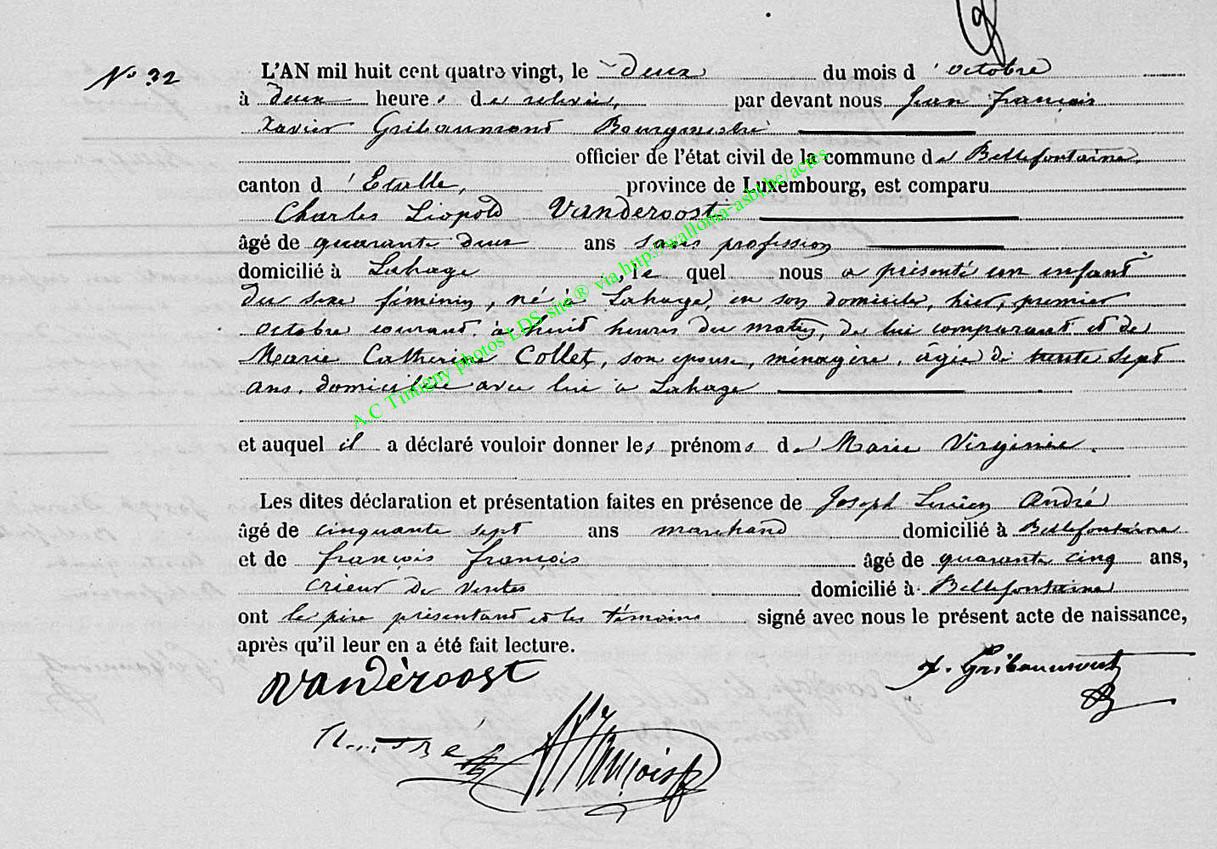 N° 32
L'AN mil huit cent quatre vingt, le deux du mois d'octobre
à deux heures de relevée, par devant nous Jean François
Xavier Gribaumont Bourgmestre
officier de l'état civil de la commune de Bellefontaine,
canton d'Etalle, province de Luxembourg, est comparu
Charles Léopold Vanderoost
âgé de quarante deux ans sans profession
domicilié à Lahage, le quel nous a présenté un enfant
du sexe féminin, né à Lahage, en son domicile, hier, premier
octobre courant, à huit heures du matin, de lui comparant et de
Marie Catherine Collet, son épouse, ménagère, âgée de trente sept
ans, domiciliée avec lui à Lahage
et auquel il a déclaré vouloir donner les prénoms de Marie Virginie.
Les dites déclaration et présentation faites en présence de Joseph Lucien André
âgé de cinquante sept ans marchand domicilié à Bellefontaine
et de François François âgé de quarante cinq ans,
crieur de ventes domicilié à Bellefontaine
ont le père présentant et les témoins signé avec nous le présent acte de naissance,
après qu'il leur en a été fait lecture.
Vandéroost
X. Gribaumont
André
François
A.C Tintigny photos LDS site® via http://wallonia-asbl.be/actes